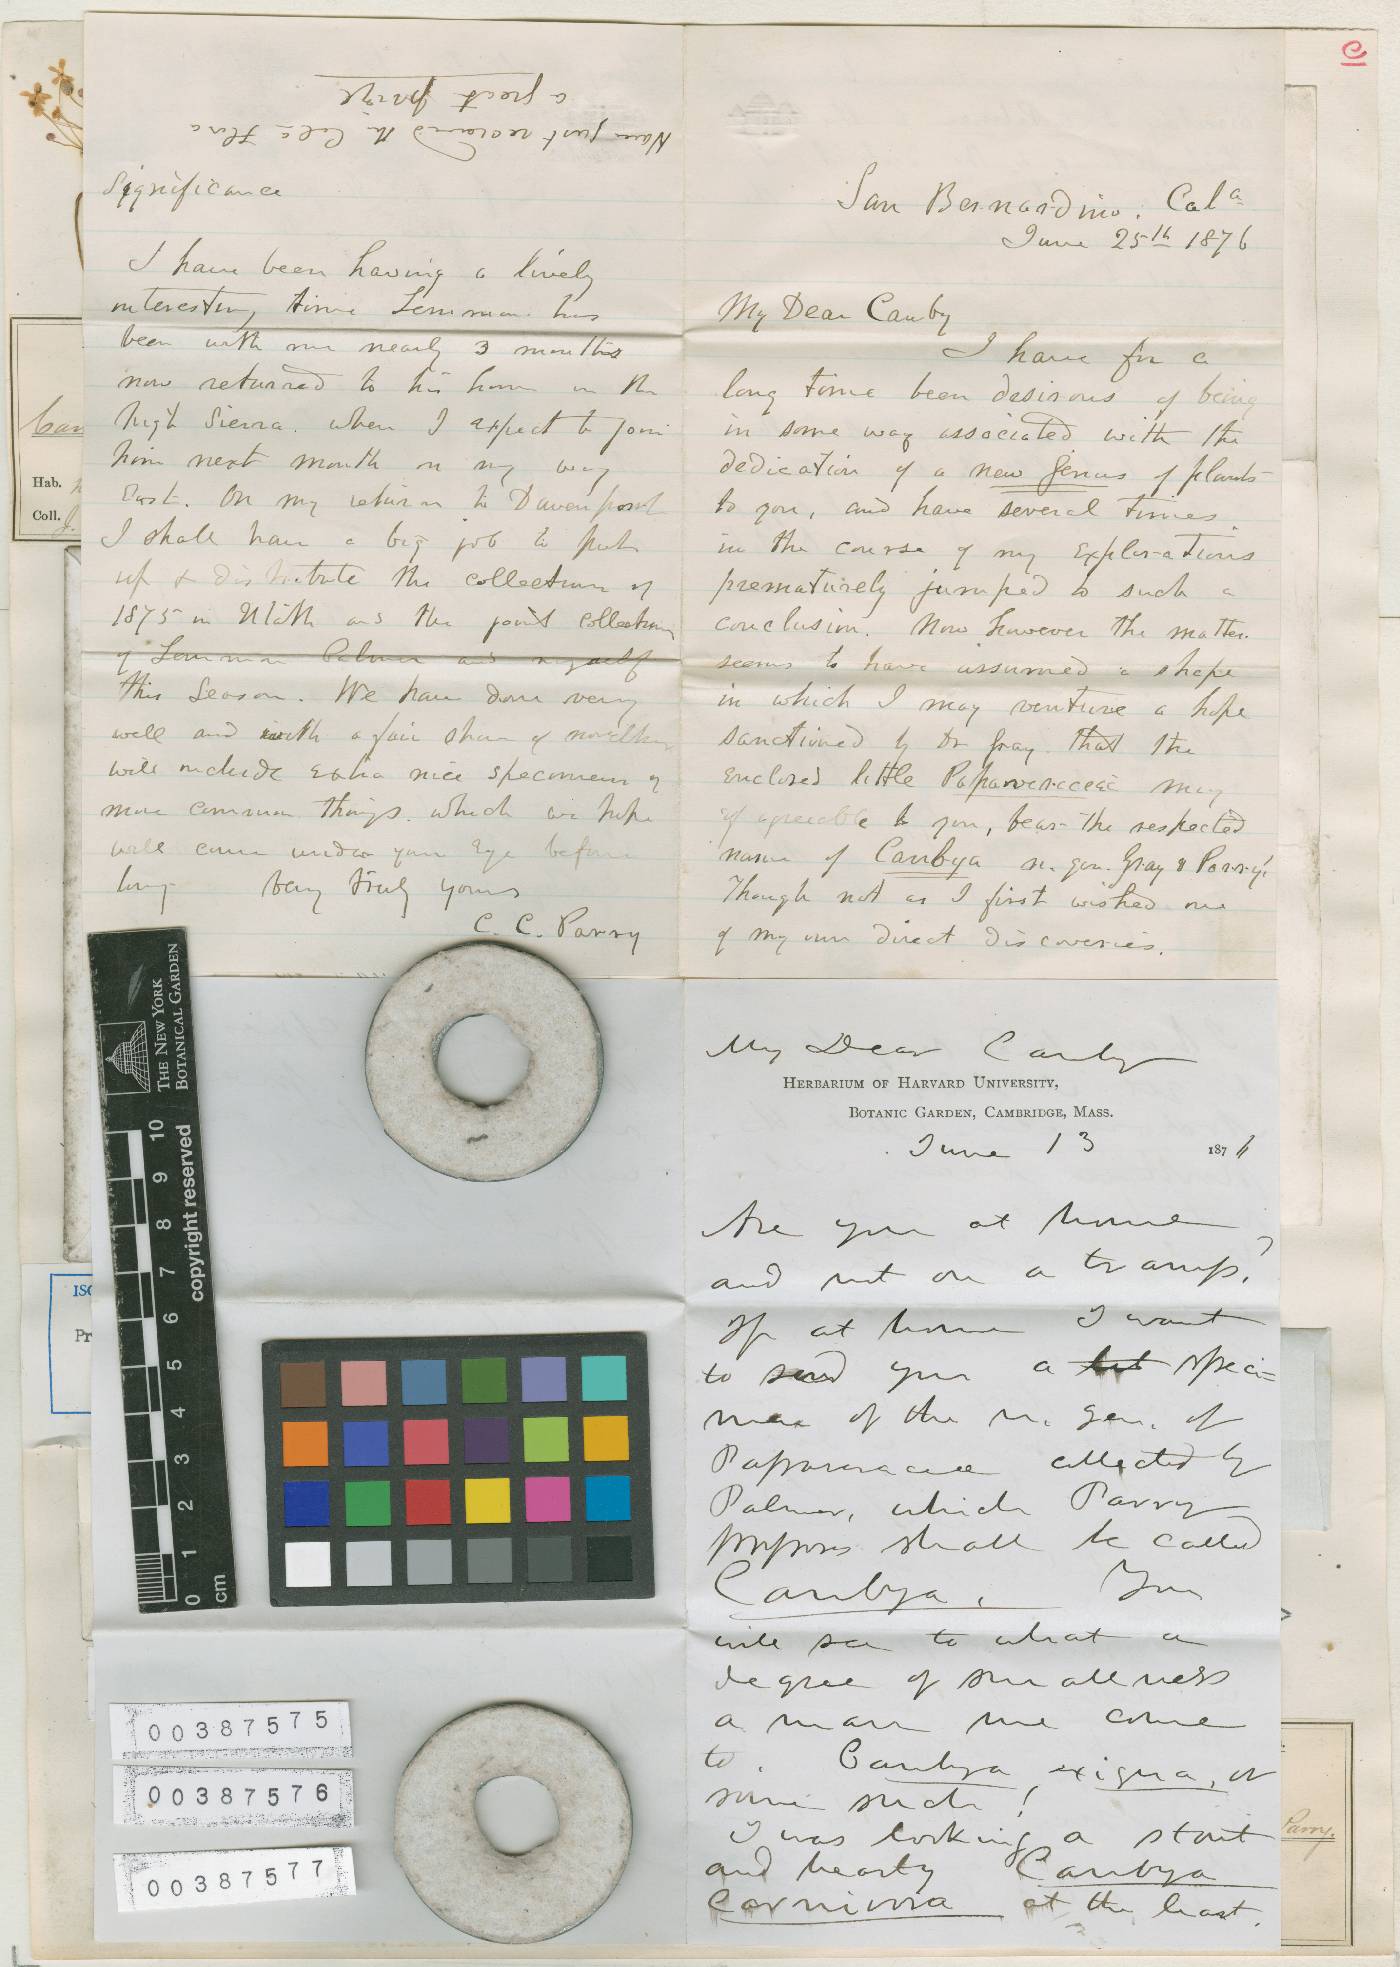 a great prize
Have just received the Cala Flora
Significance
I have been having a lively
interesting time Lemmon has
been with me nearly 3 months
now returned to his home in the
high Sierra. when I expect to join
him next month on my way
East. On my return to Davenport
I shall have a big job to put
up & distribute the collection of
1875 in Utah and the joint collections
of Lemmon Palmer and myself
this Season. We have done very
well and with a fair share of novelties
will include extra nice specimens of
more common things. which we hope
will come under your Eye before
long Very truly yours
C. C. Parry
San Bernardino. Cala
June 25th 1876
My Dear Canby
I have for a
long time been desirous of being
in some way associated with the
dedication of a new Genus of plants
to you, and have several times
in the course of my Explorations
prematurely jumped to such a
conclusion. Now however the matter
seems to have assumed a shape
in which I may venture a hope
sanctioned by Dr Gray that the
enclosed little Papaveraceae may
if agreeable to you, bear the respected
name of Canbya n. gen. Gray & Parry!
Though not as I first wished one
of my own direct discoveries.
My Dear Canby
HERBARIUM OF HARVARD UNIVERSITY,
BOTANIC GARDEN, CAMBRIDGE, MASS.
June 13 1876
Are you at home
and not on a tramp?
If at home I want
to send you a speci=
men of the n. gen. of
Papaveraceae collected by
Palmer, which Parry
proposes shall be called
Canbya. You
will see to what a
degree of smallness
a man may come
to. Canbya exigua, or
some such!
I was looking a stout
and hearty Canbya
carnivora at the least.
Can
Hab.
Coll. J.
ISO
Pr
Parry.
THE NEW YORK
BOTANICAL GARDEN
copyright reserved
0 1 2 3 4 5 6 7 8 9 10
cm
00387575
00387576
00387577
e